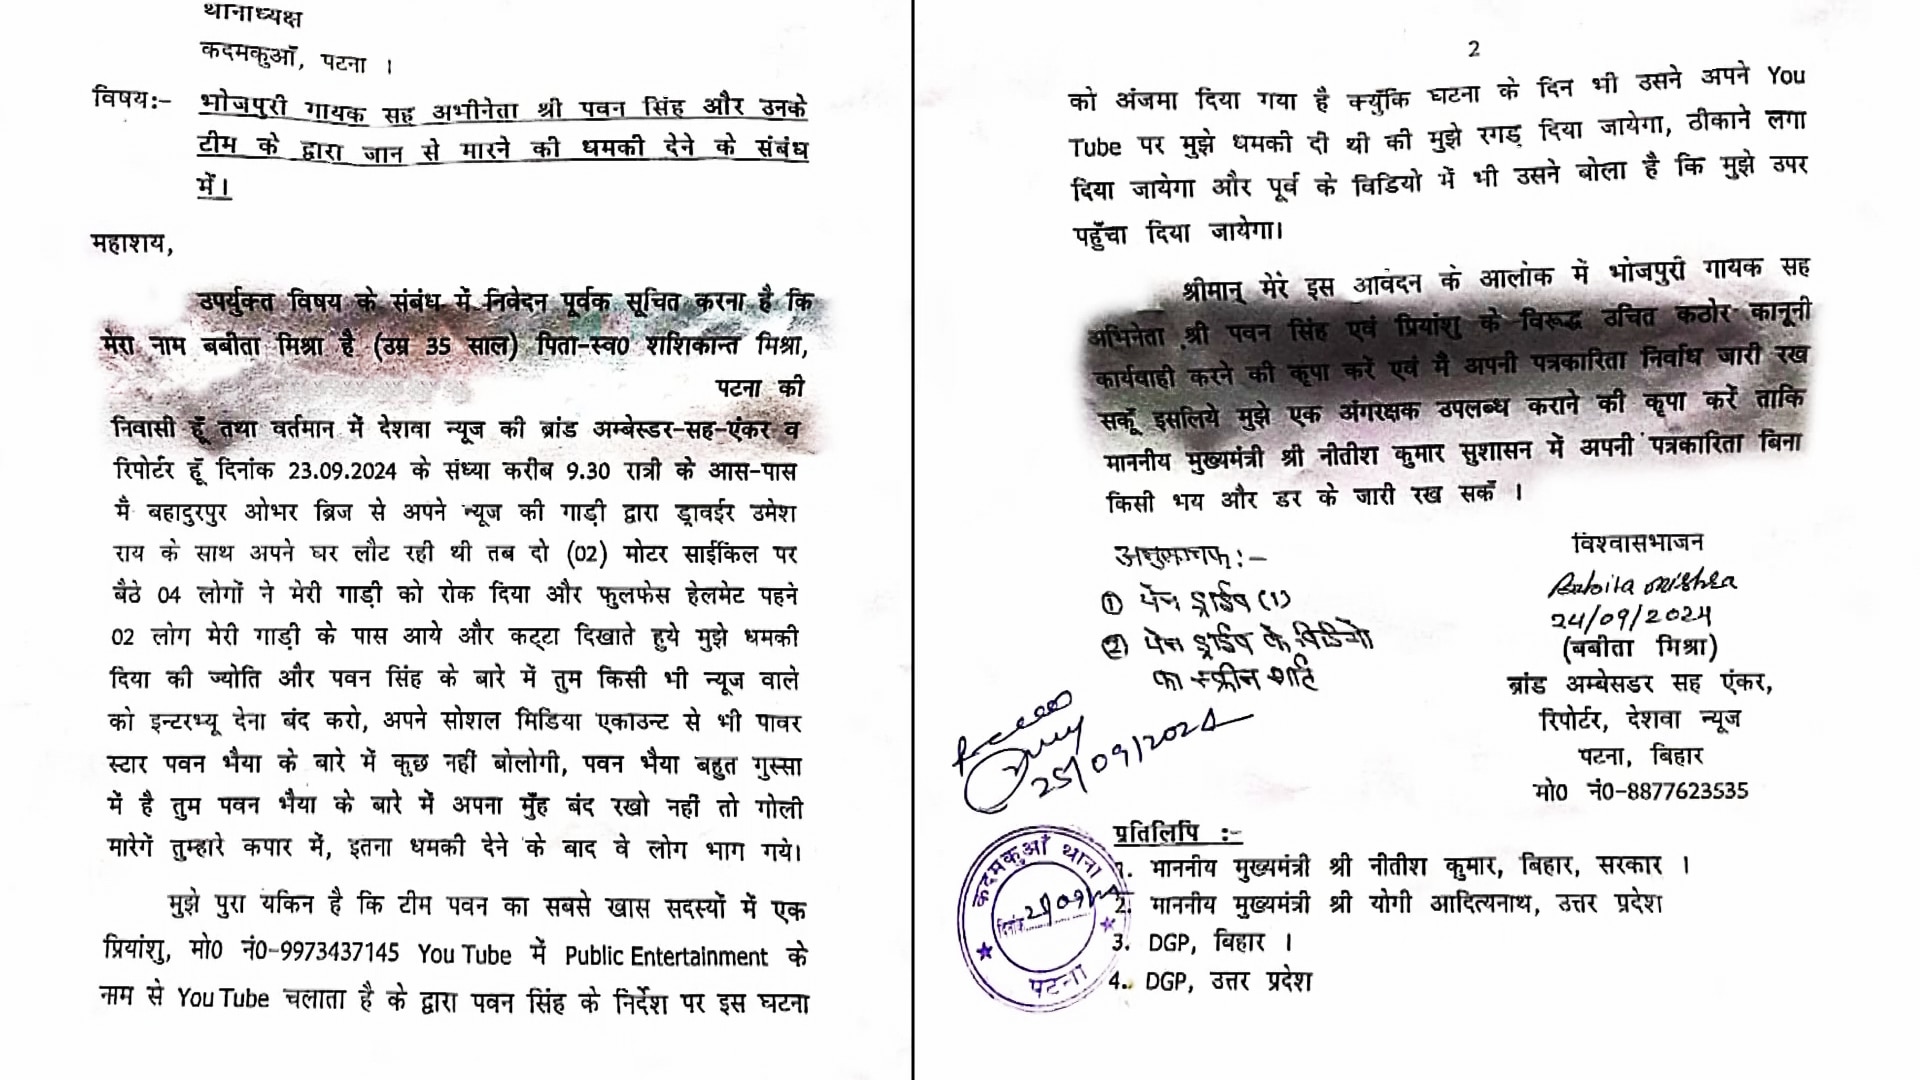 थानाध्यक्ष
कदमकुआँ, पटना ।
विषय:- भोजपुरी गायक सह अभीनेता श्री पवन सिंह और उनके
टीम के द्वारा जान से मारने की धमकी देने के संबंध
में।
महाशय,
उपर्युक्त विषय के संबंध में निवेदन पूर्वक सूचित करना है कि
मेरा नाम बबीता मिश्रा है (उम्र 35 साल) पिता-स्व0 शशिकान्त मिश्रा,
पटना की
निवासी हूँ तथा वर्तमान में देशवा न्यूज की ब्रांड अम्बेस्डर-सह-एंकर व
रिपोर्टर हूँ दिनांक 23.09.2024 के संध्या करीब 9.30 रात्री के आस-पास
मै बहादुरपुर ओभर ब्रिज से अपने न्यूज की गाड़ी द्वारा ड्रावईर उमेश
राय के साथ अपने घर लौट रही थी तब दो (02) मोटर साईकिल पर
बैठे 04 लोगों ने मेरी गाड़ी को रोक दिया और फुलफेस हेलमेट पहने
02 लोग मेरी गाड़ी के पास आये और कट्टा दिखाते हुये मुझे धमकी
दिया की ज्योति और पवन सिंह के बारे में तुम किसी भी न्यूज वाले
को इन्टरभ्यू देना बंद करो, अपने सोशल मिडिया एकाउन्ट से भी पावर
स्टार पवन भैया के बारे में कुछ नहीं बोलोगी, पवन भैया बहुत गुस्सा
में है तुम पवन भैया के बारे में अपना मुँह बंद रखो नहीं तो गोली
मारेगें तुम्हारे कपार में, इतना धमकी देने के बाद वे लोग भाग गये।
मुझे पुरा यकिन है कि टीम पवन का सबसे खास सदस्यों में एक
प्रियांशु, मो0 नं0-9973437145 You Tube में Public Entertainment के
नाम से You Tube चलाता है के द्वारा पवन सिंह के निर्देश पर इस घटना
2
को अंजमा दिया गया है क्युँकि घटना के दिन भी उसने अपने You
Tube पर मुझे धमकी दी थी की मुझे रगड़ दिया जायेगा, ठीकाने लगा
दिया जायेगा और पूर्व के विडियो में भी उसने बोला है कि मुझे उपर
पहुँचा दिया जायेगा।
श्रीमान् मेरे इस आवेदन के आलोक में भोजपुरी गायक सह
अभिनेता श्री पवन सिंह एवं प्रियांशु के विरूद्ध उचित कठोर कानूनी
कार्यवाही करने की कृपा करें एवं मै अपनी पत्रकारिता निर्वाध जारी रख
सकूँ इसलिये मुझे एक अंगरक्षक उपलब्ध कराने की कृपा करें ताकि
माननीय मुख्यमंत्री श्री नीतीश कुमार सुशासन में अपनी पत्रकारिता बिना
किसी भय और डर के जारी रख सकँ ।
अनुलग्नक:-
① पेन ड्राईव (1)
② पेन ड्राईव के विडियो
का स्क्रीन शार्ट
विश्वासभाजन
Babita mishra
24/09/2024
(बबीता मिश्रा)
ब्रांड अम्बेसडर सह एंकर,
रिपोर्टर, देशवा न्यूज
पटना, बिहार
मो0 नं0-8877623535
25/09/2024
प्रतिलिपि :-
1. माननीय मुख्यमंत्री श्री नीतीश कुमार, बिहार, सरकार ।
2. माननीय मुख्यमंत्री श्री योगी आदित्यनाथ, उत्तर प्रदेश
3. DGP, बिहार ।
4. DGP, उत्तर प्रदेश
कदमकुआं थाना
दिनांक
पटना